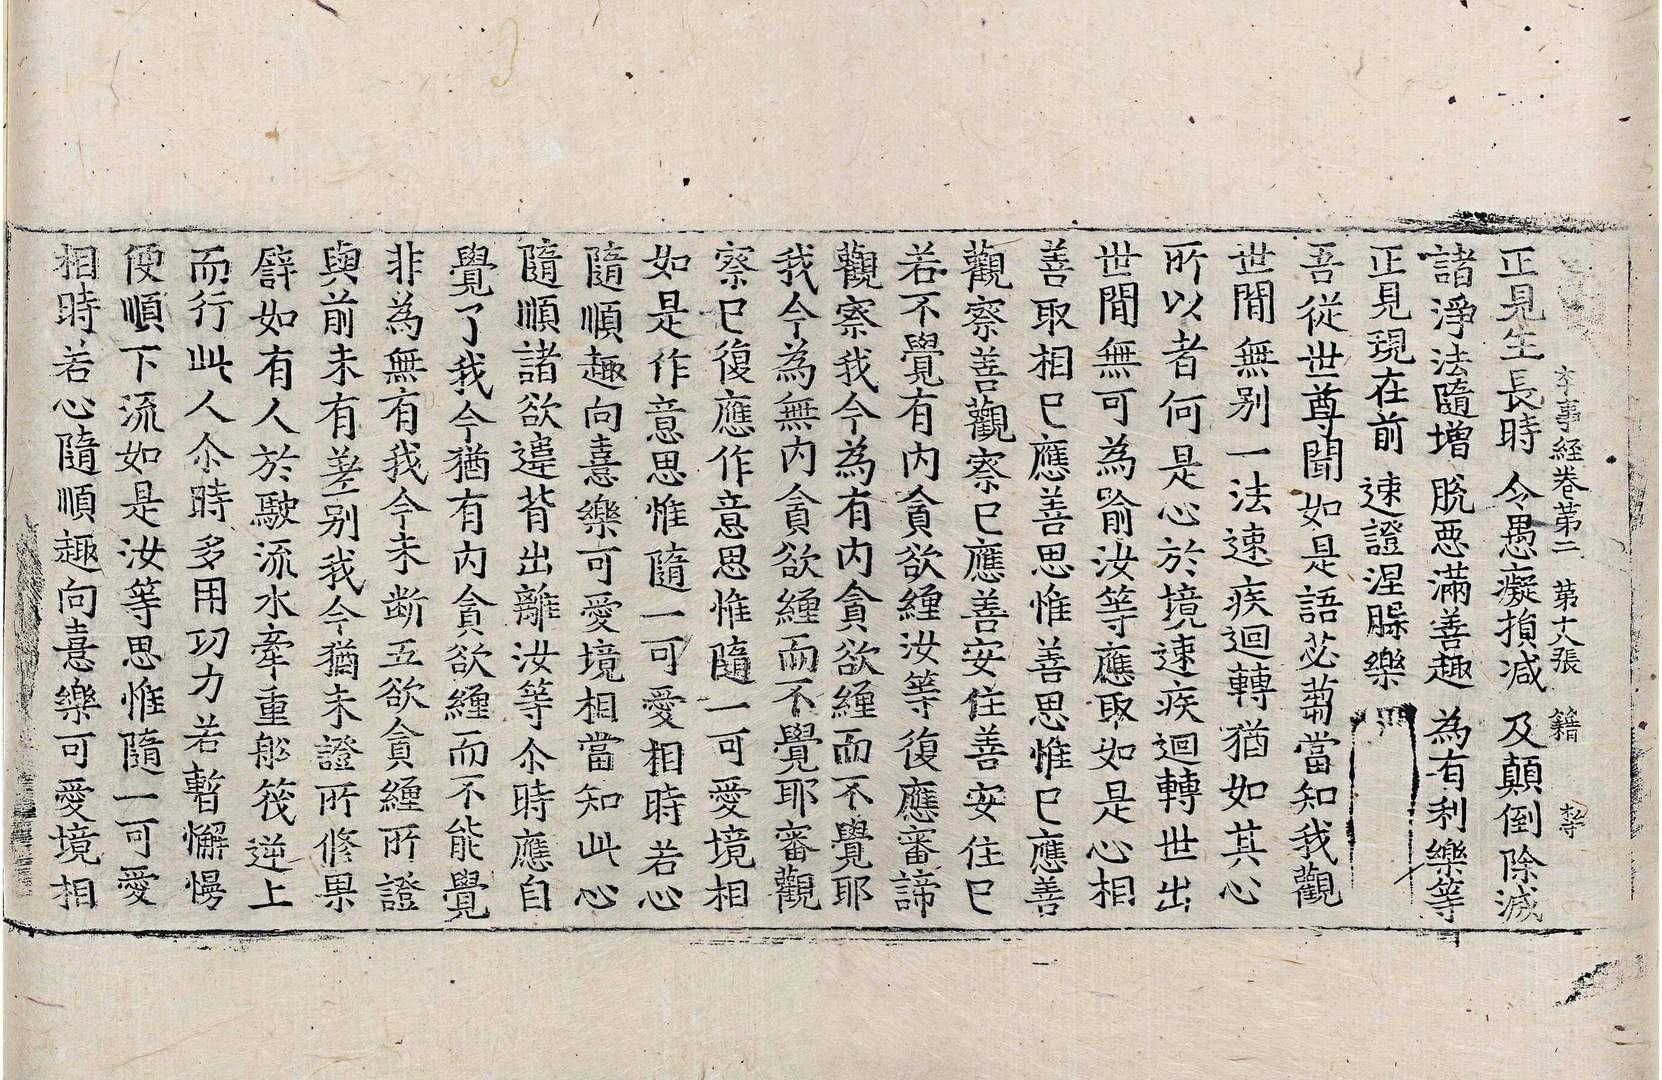 本事経卷苐二　苐十八張　籍　李
正見生長時　令愚癡損減　及顛倒除滅
諸淨法隨增　脫悪滿善趣　為有利樂等
正見現在前　速證涅槃樂
吾從世尊聞如是語苾蒭當知我觀
世間無别一法速疾迴轉猶如其心
所以者何是心於境速疾迴轉世出
世間無可為喻汝等應取如是心相
善取相已應善思惟善思惟已應善
觀察善觀察已應善安住善安住已
若不覺有內貪欲纏汝等復應審諦
觀察我今為有內貪欲纏而不覺耶
我今為無內貪欲纏而不覺耶審觀
察已復應作意思惟隨一可愛境相
如是作意思惟隨一可愛相時若心
隨順趣向憙樂可愛境相當知此心
隨順諸欲違背出離汝等尒時應自
覺了我今猶有內貪欲纏而不能覺
非為無有我今未断五欲貪纏所證
與前未有差别我今猶未證所修果
譬如有人於駛流水牽重船筏逆上
而行此人尒時多用功力若暫懈慢
便順下流如是汝等思惟隨一可愛
相時若心隨順趣向憙樂可愛境相